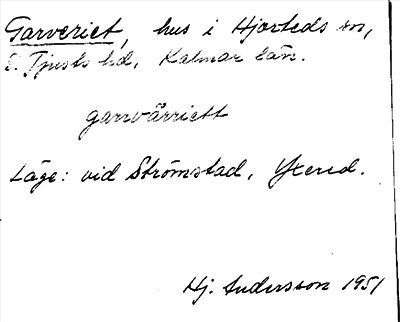 Garveriet, hus i Hjorteds sn,
S. Tjusts hd, Kalmar län.
garrvärriett
Läge: vid Strömstad, Yxered.
Hj. Andersson 1951